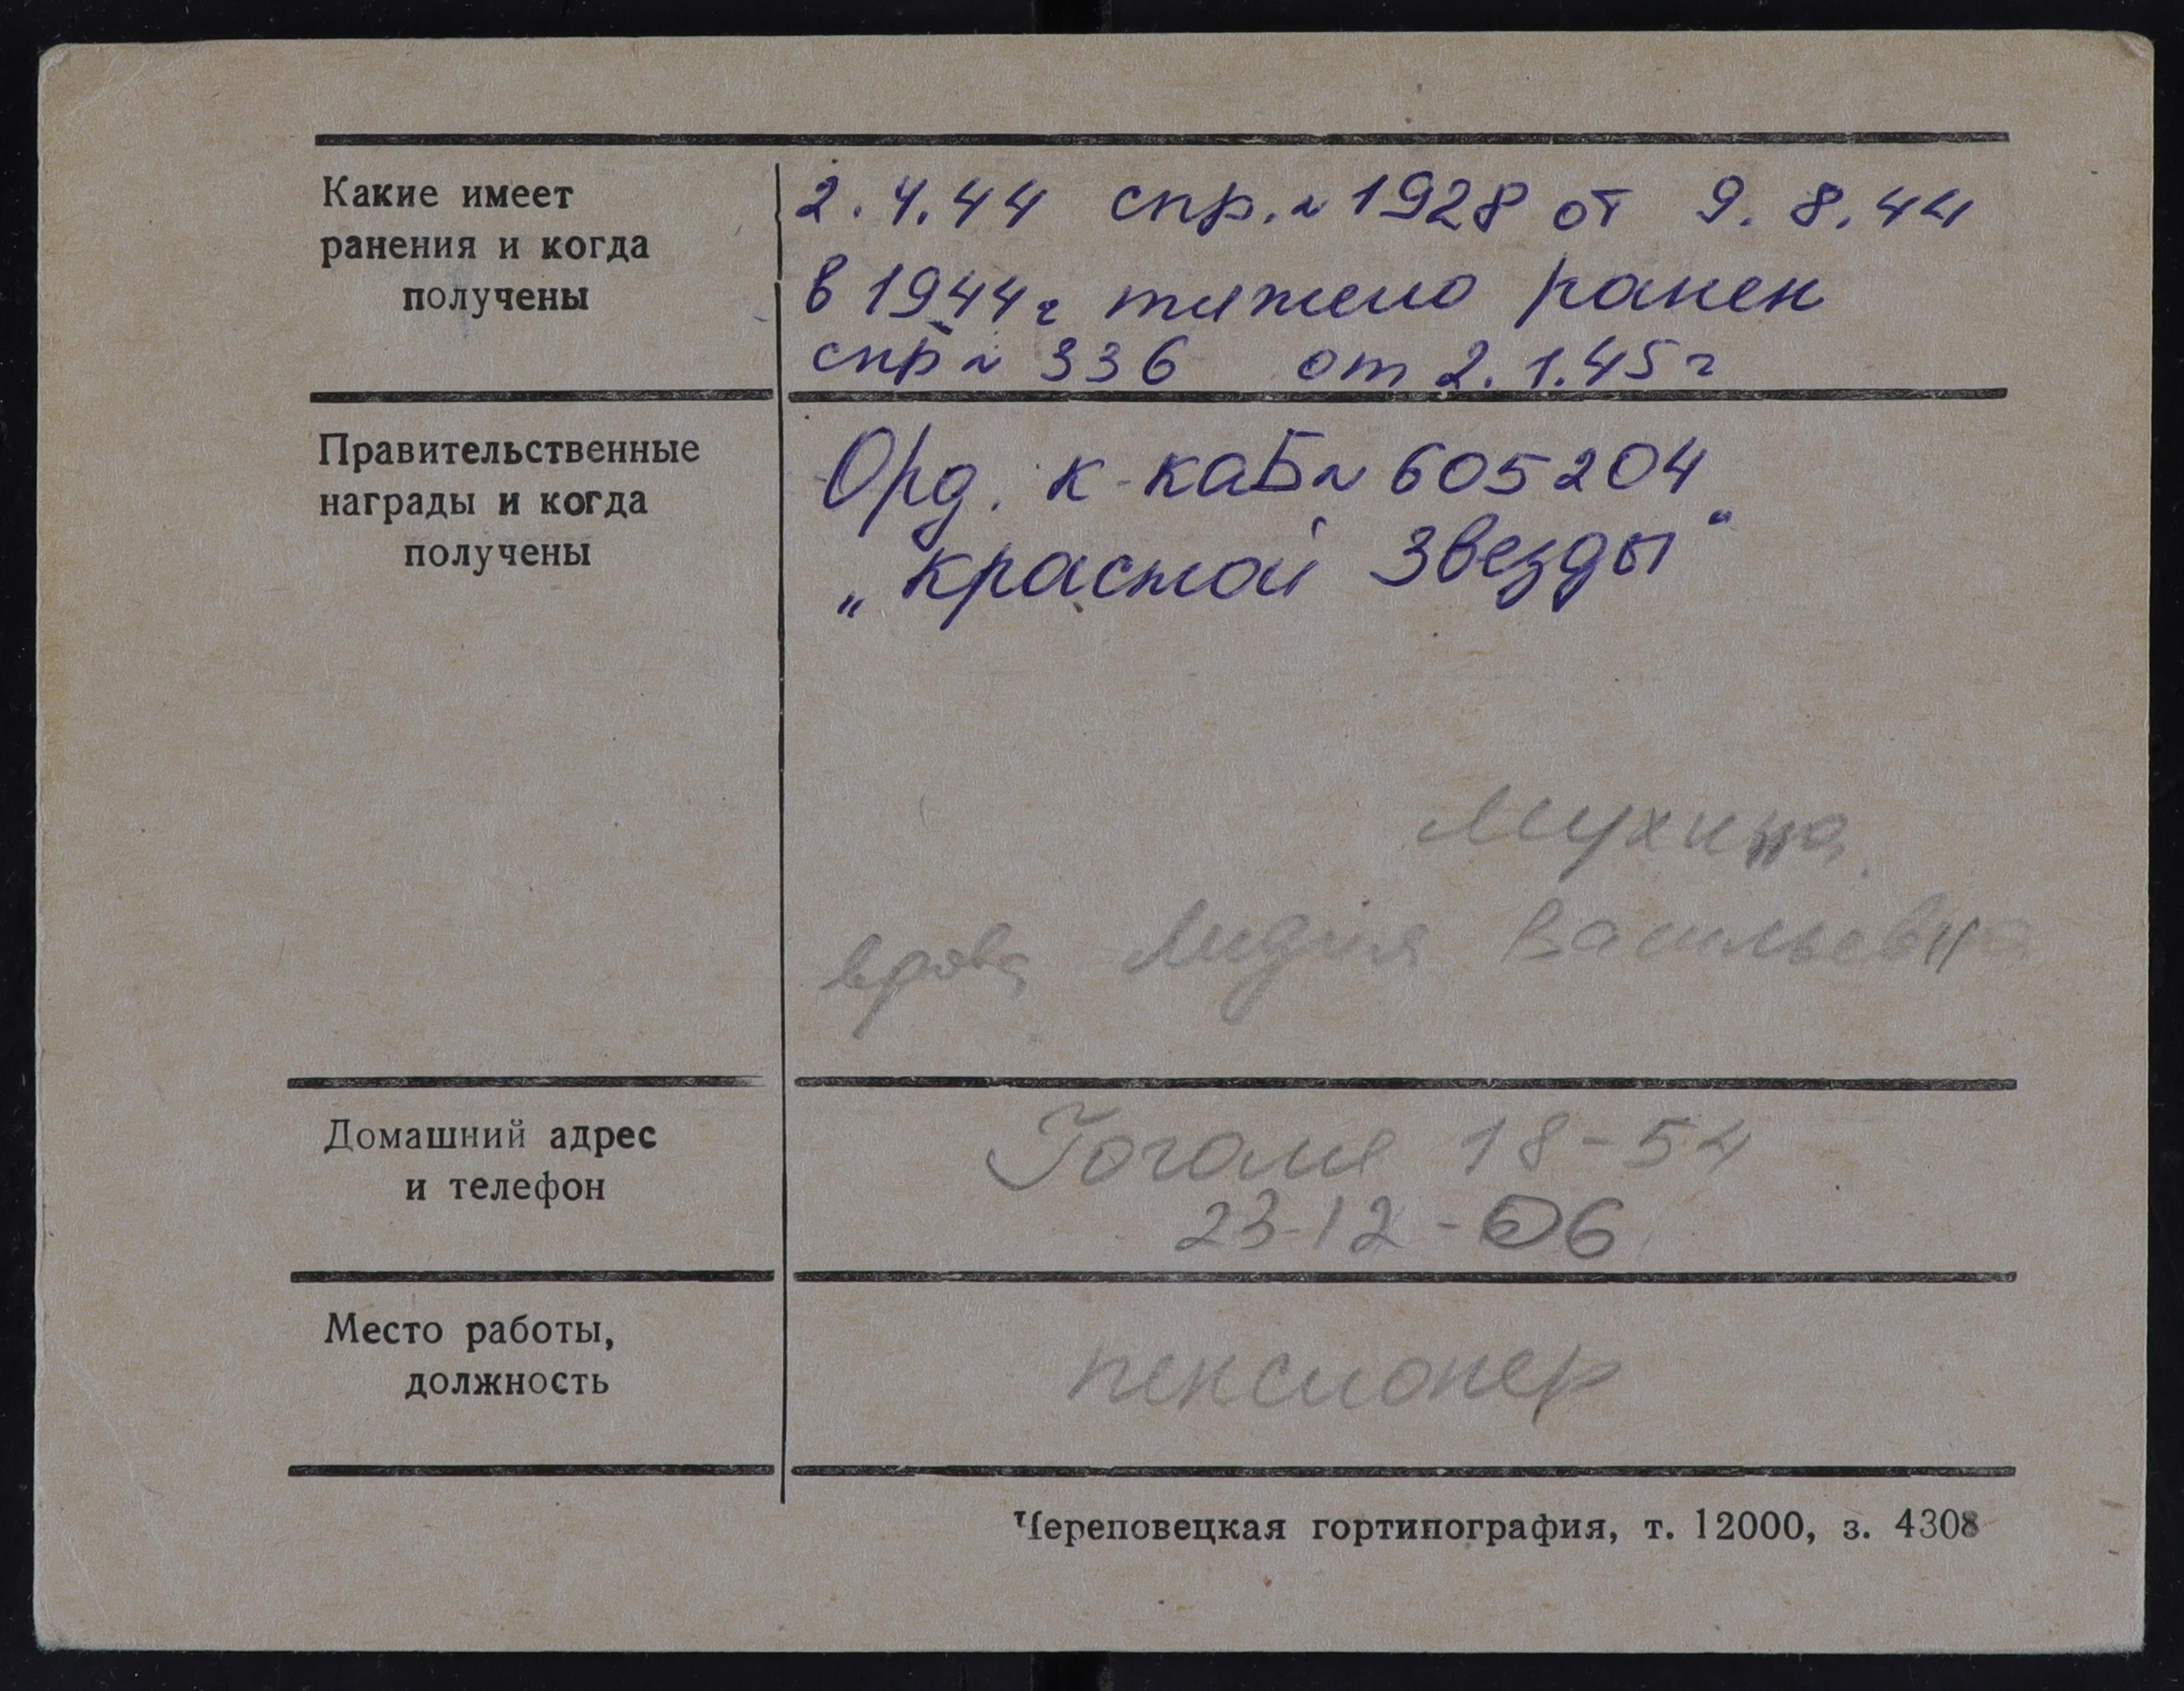 Какие имеет
ранения и когда
получены
2.4.44 спр. № 1928 от 9.8.44
в 1944 г тяжело ранен
спр № 336 от 2.1.45 г
Правительственные
награды и когда
получены
Орд. к-ка Б № 605204
„Красной Звезды"
Мухина
вдова Лидия Васильевна
Домашний адрес
и телефон
Гоголя 18-54
23-12-06
Место работы,
должность
пенсионер
Череповецкая гортипография, т. 12000, з. 4308